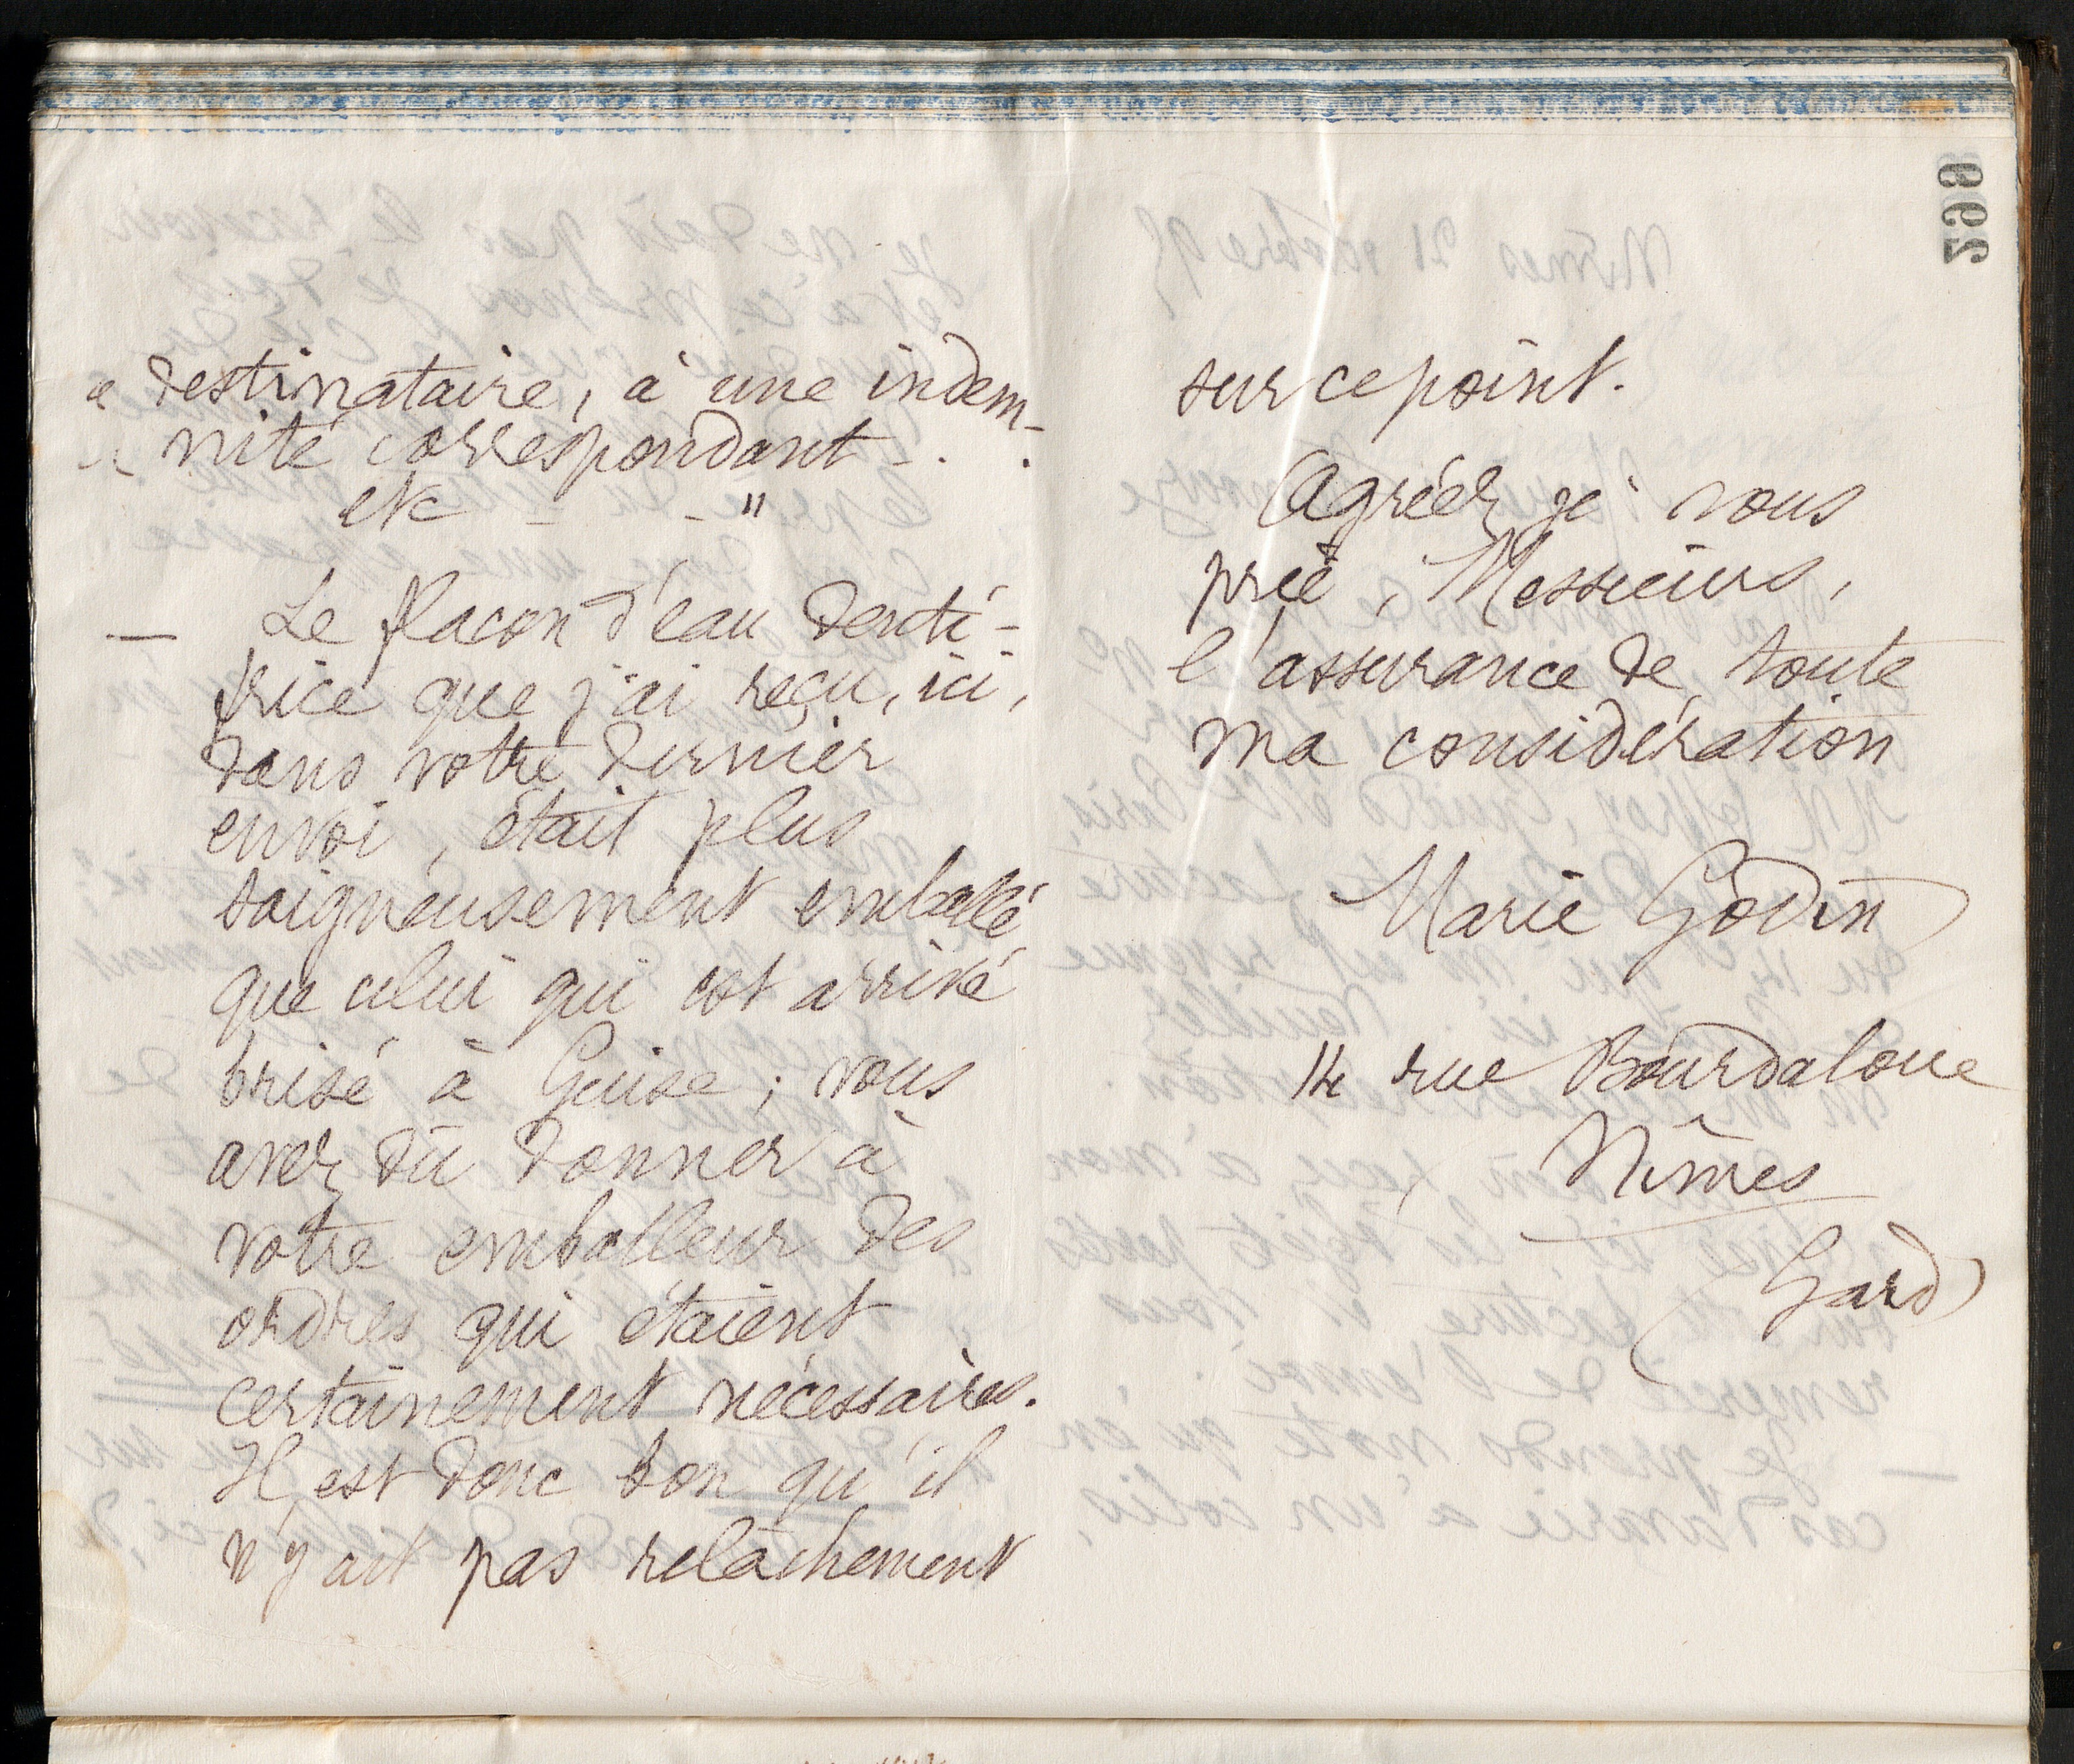 « destinataire, à une indem-
« nité correspondant - . .
etc - - "
— Le flacon d'eau denti-
frice que j'ai reçu, ici,
dans votre dernier
envoi, était plus
soigneusement emballé
que celui qui est arrivé
brisé à Guise ; vous
avez dû donner à
votre emballeur des
ordres qui étaient
certainement nécessaires.
Il est donc bon qu'il
n'y ait pas relâchement
sur ce point.
Agréez je vous
prie, Messieurs,
l'assurance de toute
ma considération
Marie Godin
14 rue Bourdaloue
Nîmes
Gard